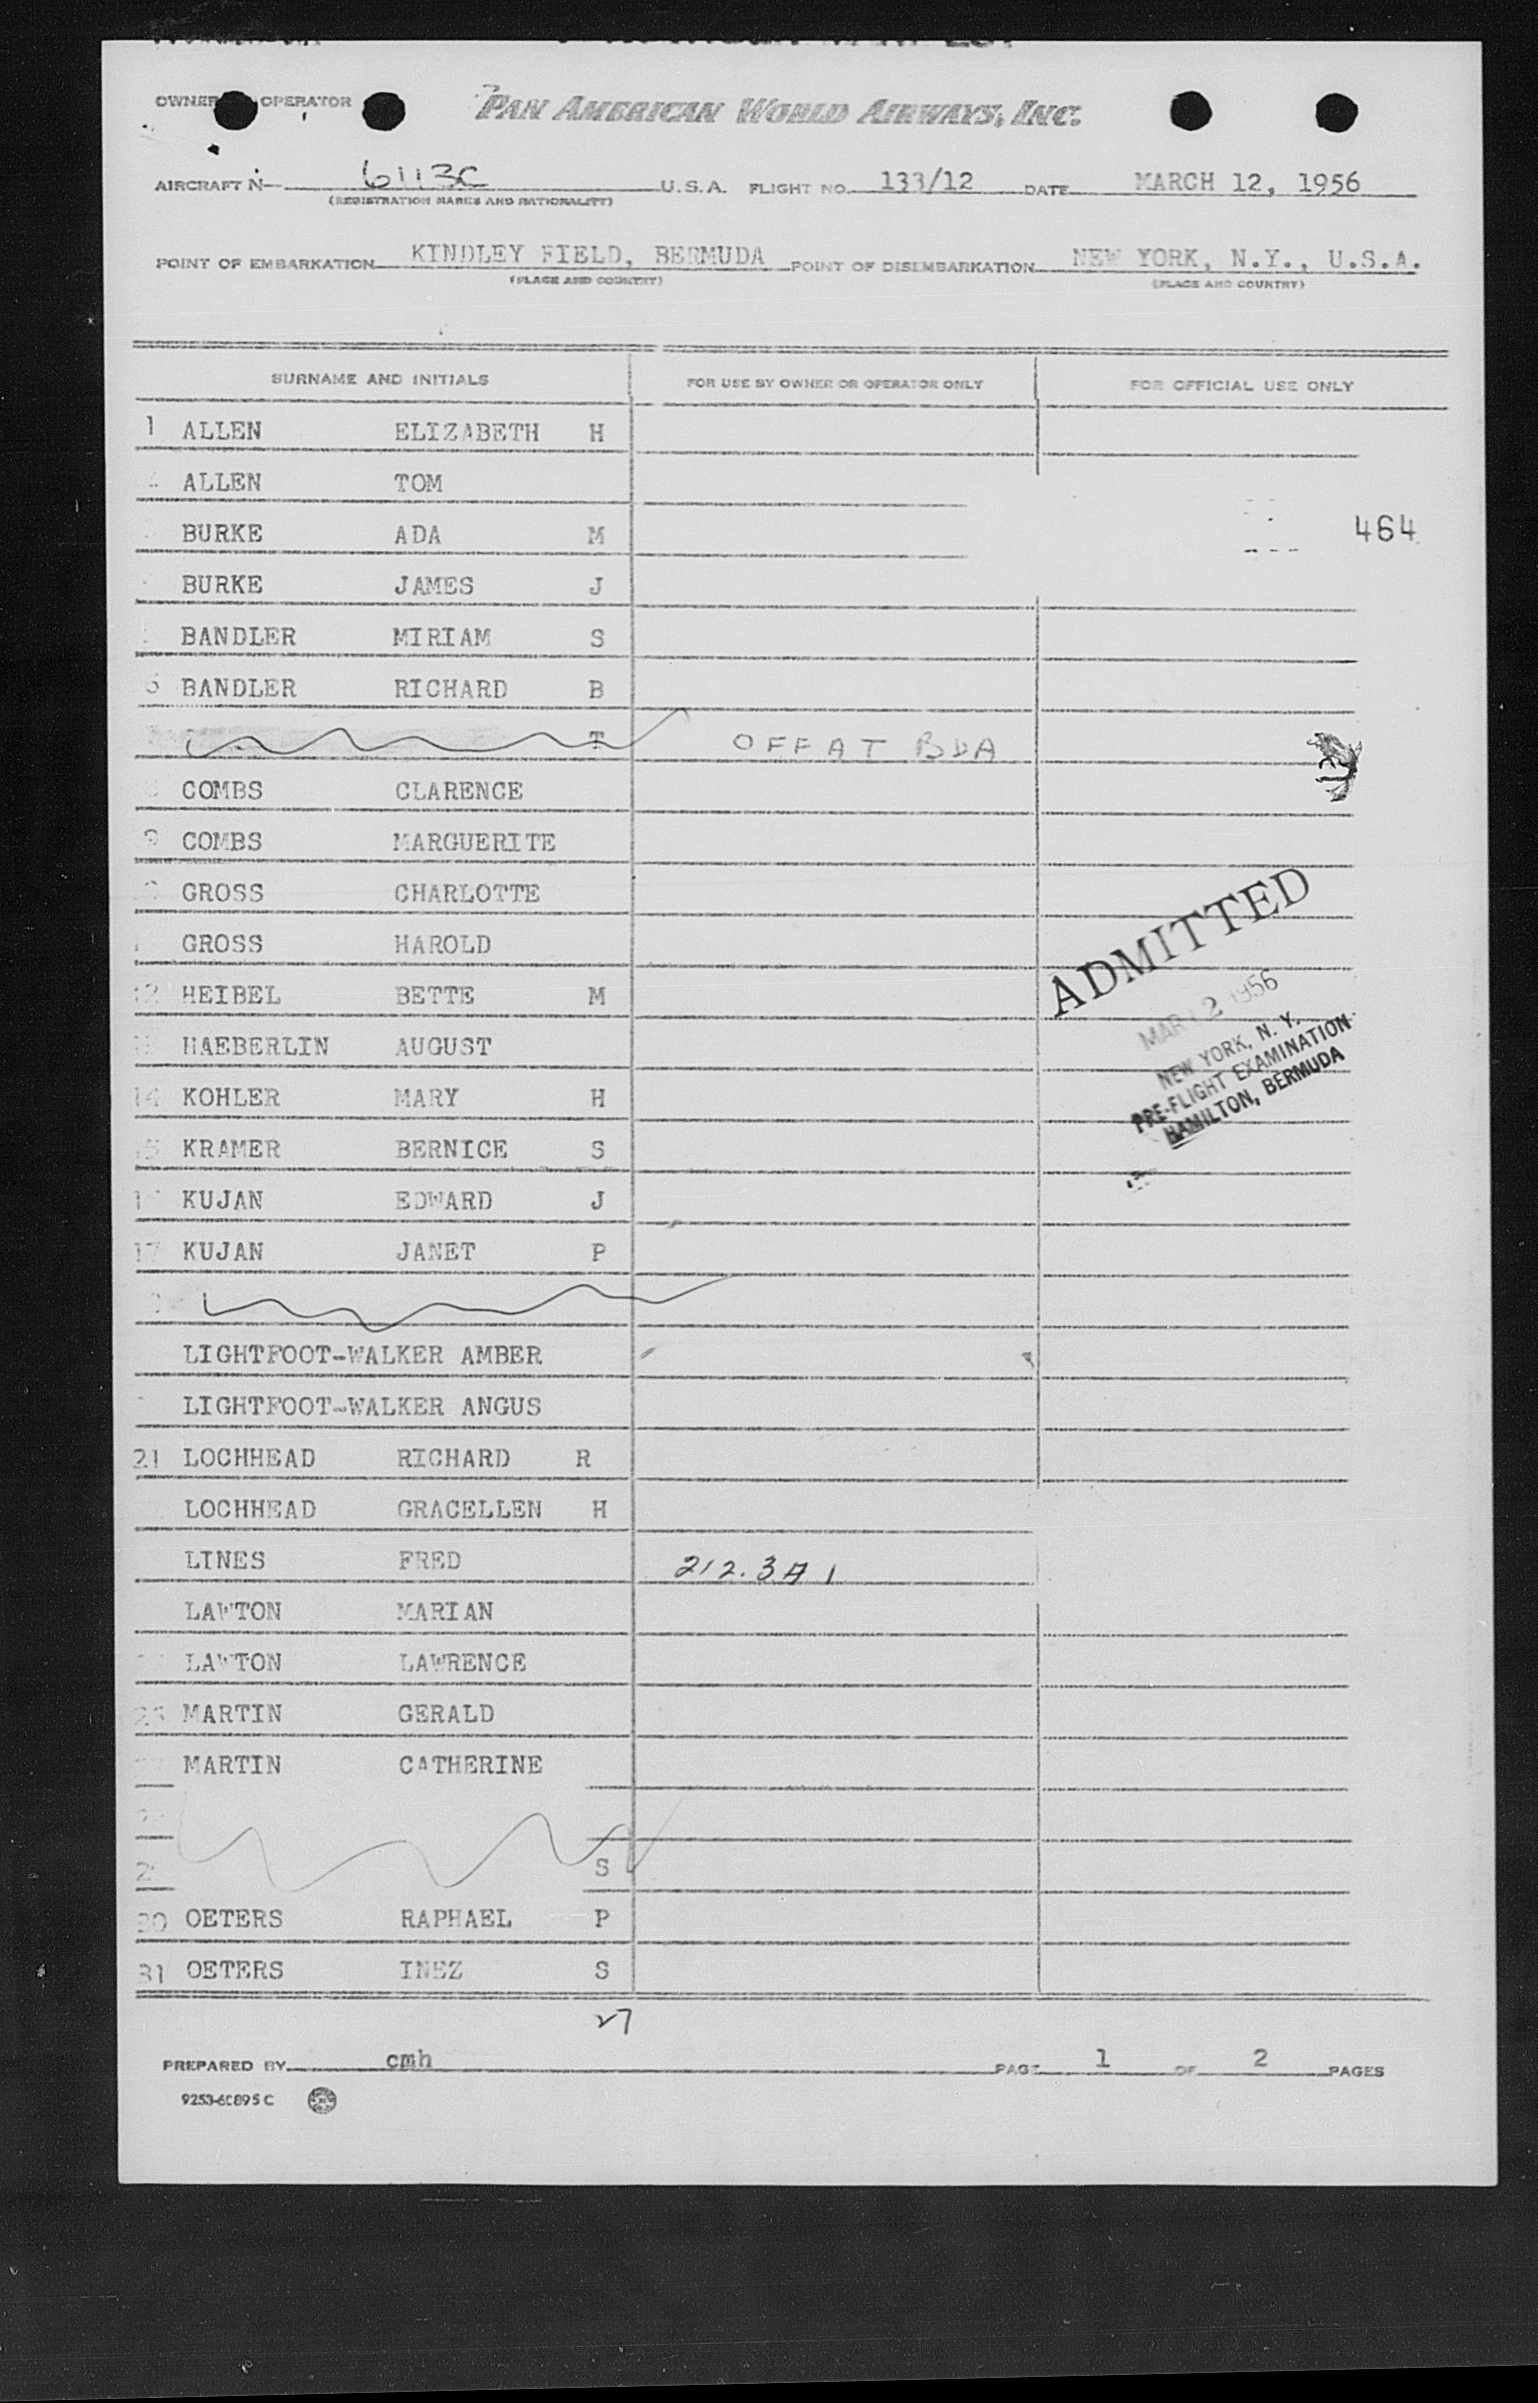 OWNER OPERATOR PAN AMERICAN WORLD AIRWAYS, INC.
AIRCRAFT N 6113C U.S.A. FLIGHT NO. 133/12 DATE MARCH 12, 1956
(REGISTRATION MARKS AND NATIONALITY)
POINT OF EMBARKATION KINDLEY FIELD, BERMUDA POINT OF DISEMBARKATION NEW YORK, N.Y., U.S.A.
(PLACE AND COUNTRY) (PLACE AND COUNTRY)
SURNAME AND INITIALS FOR USE BY OWNER OR OPERATOR ONLY FOR OFFICIAL USE ONLY
1 ALLEN ELIZABETH H
ALLEN TOM
BURKE ADA M 464
BURKE JAMES J
BANDLER MIRIAM S
6 BANDLER RICHARD B
T OFF AT BDA
COMBS CLARENCE
9 COMBS MARGUERITE
GROSS CHARLOTTE
GROSS HAROLD
12 HEIBEL BETTE M
HAEBERLIN AUGUST
14 KOHLER MARY H
15 KRAMER BERNICE S
KUJAN EDWARD J
17 KUJAN JANET P
LIGHTFOOT-WALKER AMBER
LIGHTFOOT-WALKER ANGUS
21 LOCHHEAD RICHARD R
LOCHHEAD GRACELLEN H
LINES FRED 212.3A1
LAWTON MARIAN
LAWTON LAWRENCE
MARTIN GERALD
MARTIN CATHERINE
S
30 OETERS RAPHAEL P
31 OETERS INEZ S
27
ADMITTED
MAR 12 1956
NEW YORK, N. Y.
PRE-FLIGHT EXAMINATION
HAMILTON, BERMUDA
PREPARED BY cmh PAGE 1 OF 2 PAGES
9253-60895 C